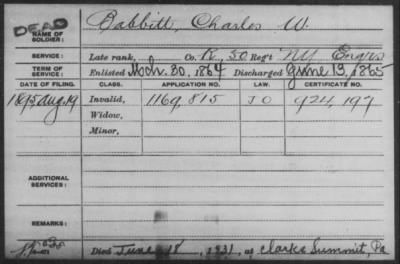 DEAD
NAME OF SOLDIER:
Babbitt, Charles W.
SERVICE:
Late rank, Co. K, 50 Reg't NY Eng'rs
TERM OF SERVICE:
Enlisted Mch. 30, 1864 Discharged June 13, 1865
DATE OF FILING. CLASS. APPLICATION NO. LAW. CERTIFICATE NO.
1895 Aug. 19 Invalid, 1169,815 J O 924,197
Widow,
Minor,
ADDITIONAL SERVICES:
REMARKS:
Died June 18, 1931, at Clarks Summit, Pa